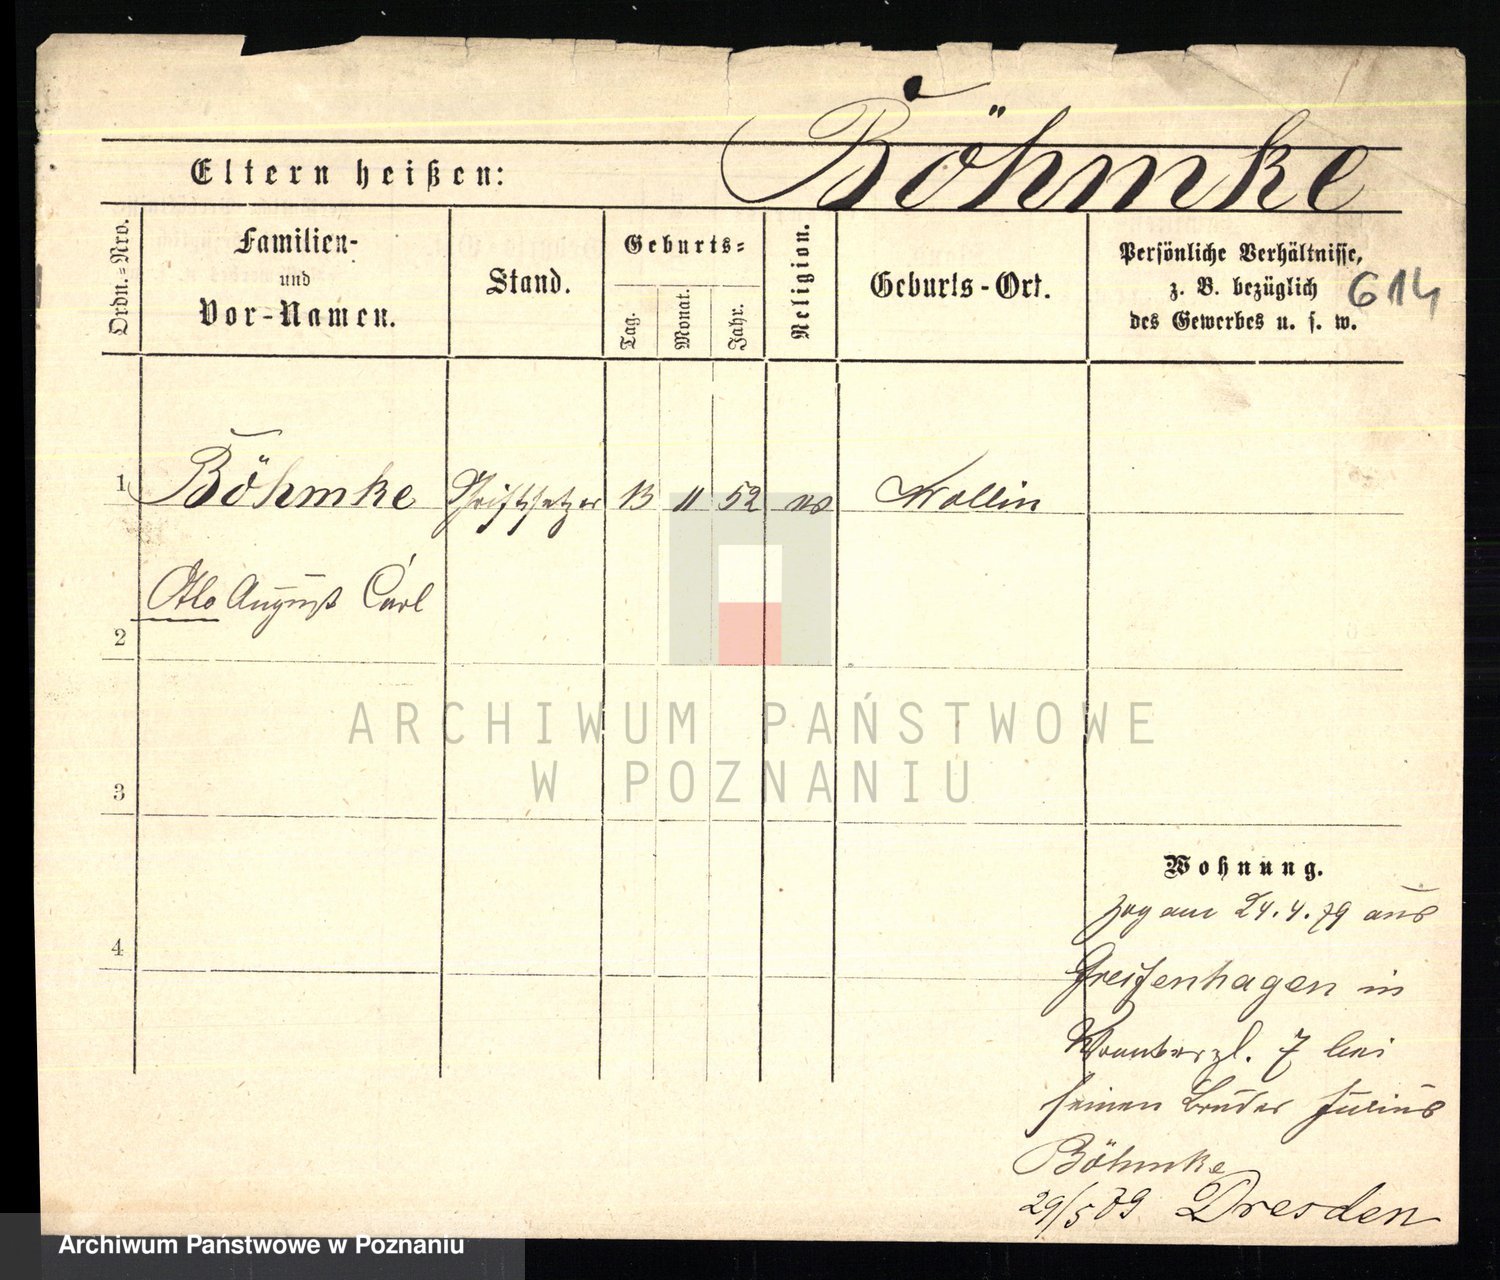 Böhmke
Eltern heißen:
Ordn.=Nro.
Familien-
und
Vor-Namen.
Stand.
Geburts=
Tag.
Monat.
Jahr.
Religion.
Geburts-Ort.
Persönliche Verhältnisse,
z. B. bezüglich
des Gewerbes u. s. w.
614
1 Böhmke Schriftsetzer 13 11 52 Wollin
Otto August Carl
2
ARCHIWUM PAŃSTWOWE
W POZNANIU
3
Wohnung.
zog am 24.4.79 aus
4
Greifenhagen in
7 bei
seinen Bruder Julius
Böhmke
29/5 79 Dresden
Archiwum Państwowe w Poznaniu